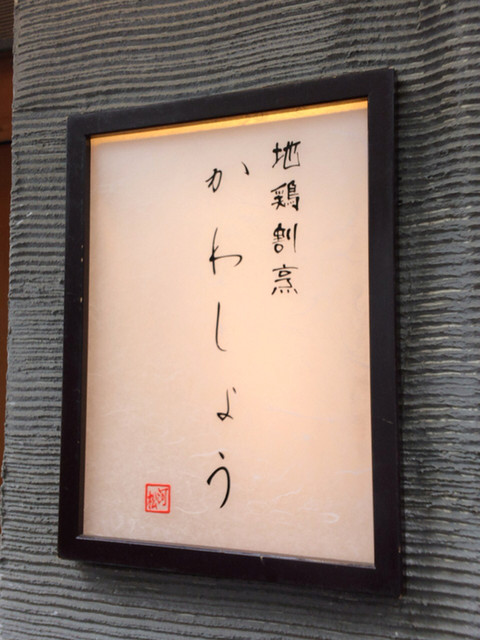 地鶏割烹
かわしょう
河松